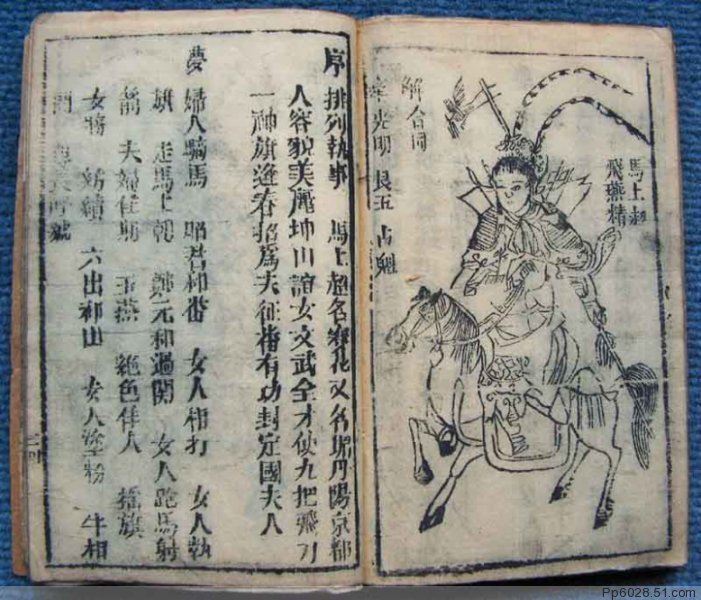 馬上超
飛燕精
解合同
光明 艮玉 占魁
序 排列執事 馬上超名賽花又名丹陽京都
人容貌美麗坤山誼女文武全才使九把飛刀
一神旗逢春招爲夫征番有功封定國夫人
夢 婦人騎馬 昭君和番 女人相打 女人執
旗 走馬上朝 鄭元和過関 女人跑馬射
箭 夫婦 玉燕 絕色佳人 搖旗
女將 紡績 六出祁山 女人塗粉 牛相
Pp6028.51.com